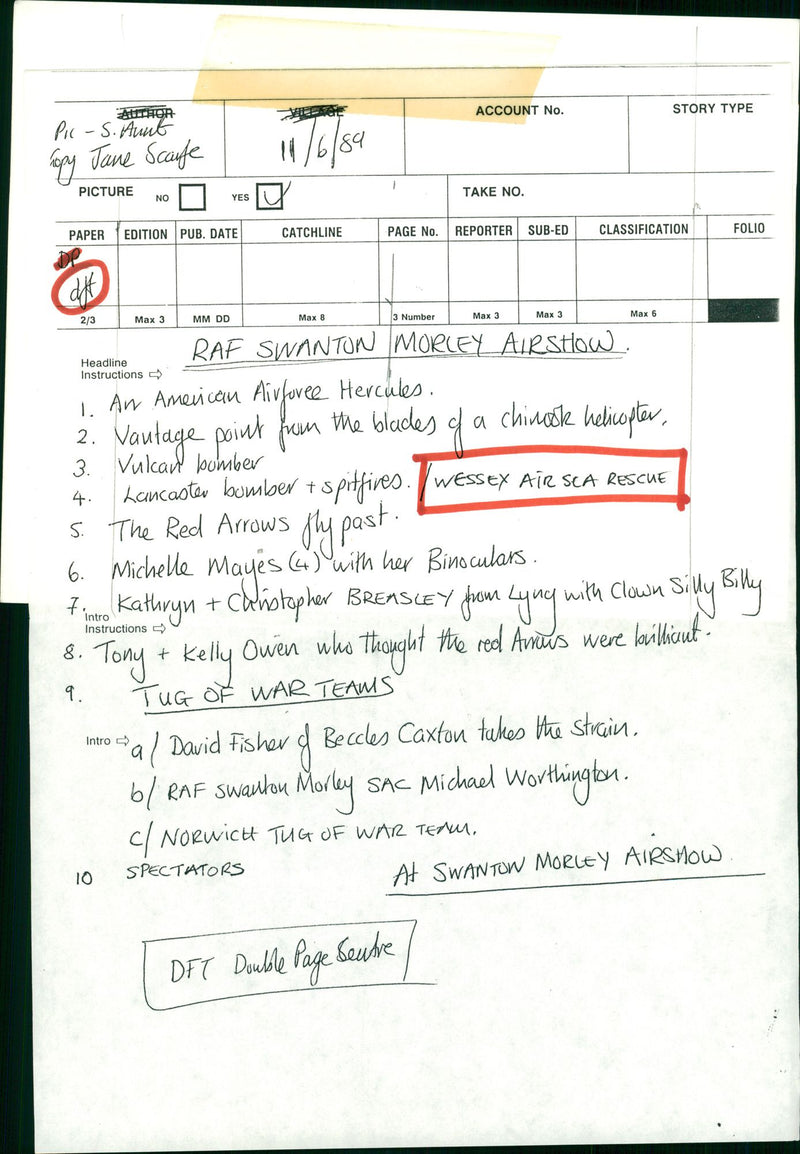 AUTHOR VILLAGE ACCOUNT No. STORY TYPE
Pic - S. Aunt 11/6/89
Copy Jane Scarfe
PICTURE NO YES TAKE NO.
PAPER EDITION PUB. DATE CATCHLINE PAGE No. REPORTER SUB-ED CLASSIFICATION FOLIO
DP
dft
2/3 Max 3 MM DD Max 8 3 Number Max 3 Max 3 Max 6
RAF SWANTON MORLEY AIRSHOW.
Headline
Instructions ⇨
1. An American Airforce Hercules.
2. Vantage point from the blades of a chinook helicopter.
3. Vulcan bomber
4. Lancaster bomber + spitfires. / WESSEX AIR SEA RESCUE
5. The Red Arrows fly past.
6. Michelle Mayes (4) with her Binoculars.
7. Kathryn + Christopher BREASLEY from Lyng with Clown Silly Billy
Intro
Instructions ⇨
8. Tony + Kelly Owen who thought the red Arrows were brilliant.
9. TUG OF WAR TEAMS
Intro ⇨
a/ David Fisher of Beccles Caxton takes the strain.
b/ RAF Swanton Morley SAC Michael Worthington.
c/ NORWICH TUG OF WAR TEAM.
10 SPECTATORS At SWANTON MORLEY AIRSHOW.
DFT Double Page Sentre